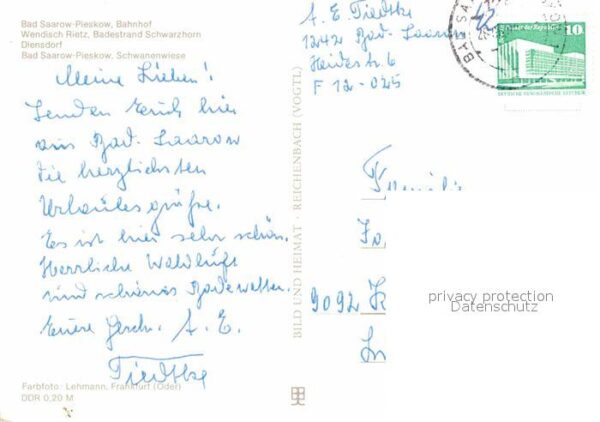 Bad Saarow-Pieskow, Bahnhof
Wendisch Rietz, Badestrand Schwarzhorn
Diensdorf
Bad Saarow-Pieskow, Schwanenwiese
Meine Lieben!
Senden Euch hier
aus Bad-Saarow
die herzlichsten
Urlaubsgrüße.
Es ist hier sehr schön.
Herrliche Waldluft
und schönes Badewetter.
Eure Gesch. A. E.
Tiedtke
Farbfoto · Lehmann, Frankfurt (Oder)
DDR 0,20 M
BILD UND HEIMAT · REICHENBACH (VOGTL)
A. E. Tiedtke
1242 Bad-Saarow
Heidestr. 6
F 12-025
BAD SAAROW
10
DEUTSCHE DEMOKRATISCHE REPUBLIK
Familie
Fa
9092 K
privacy protection
Datenschutz